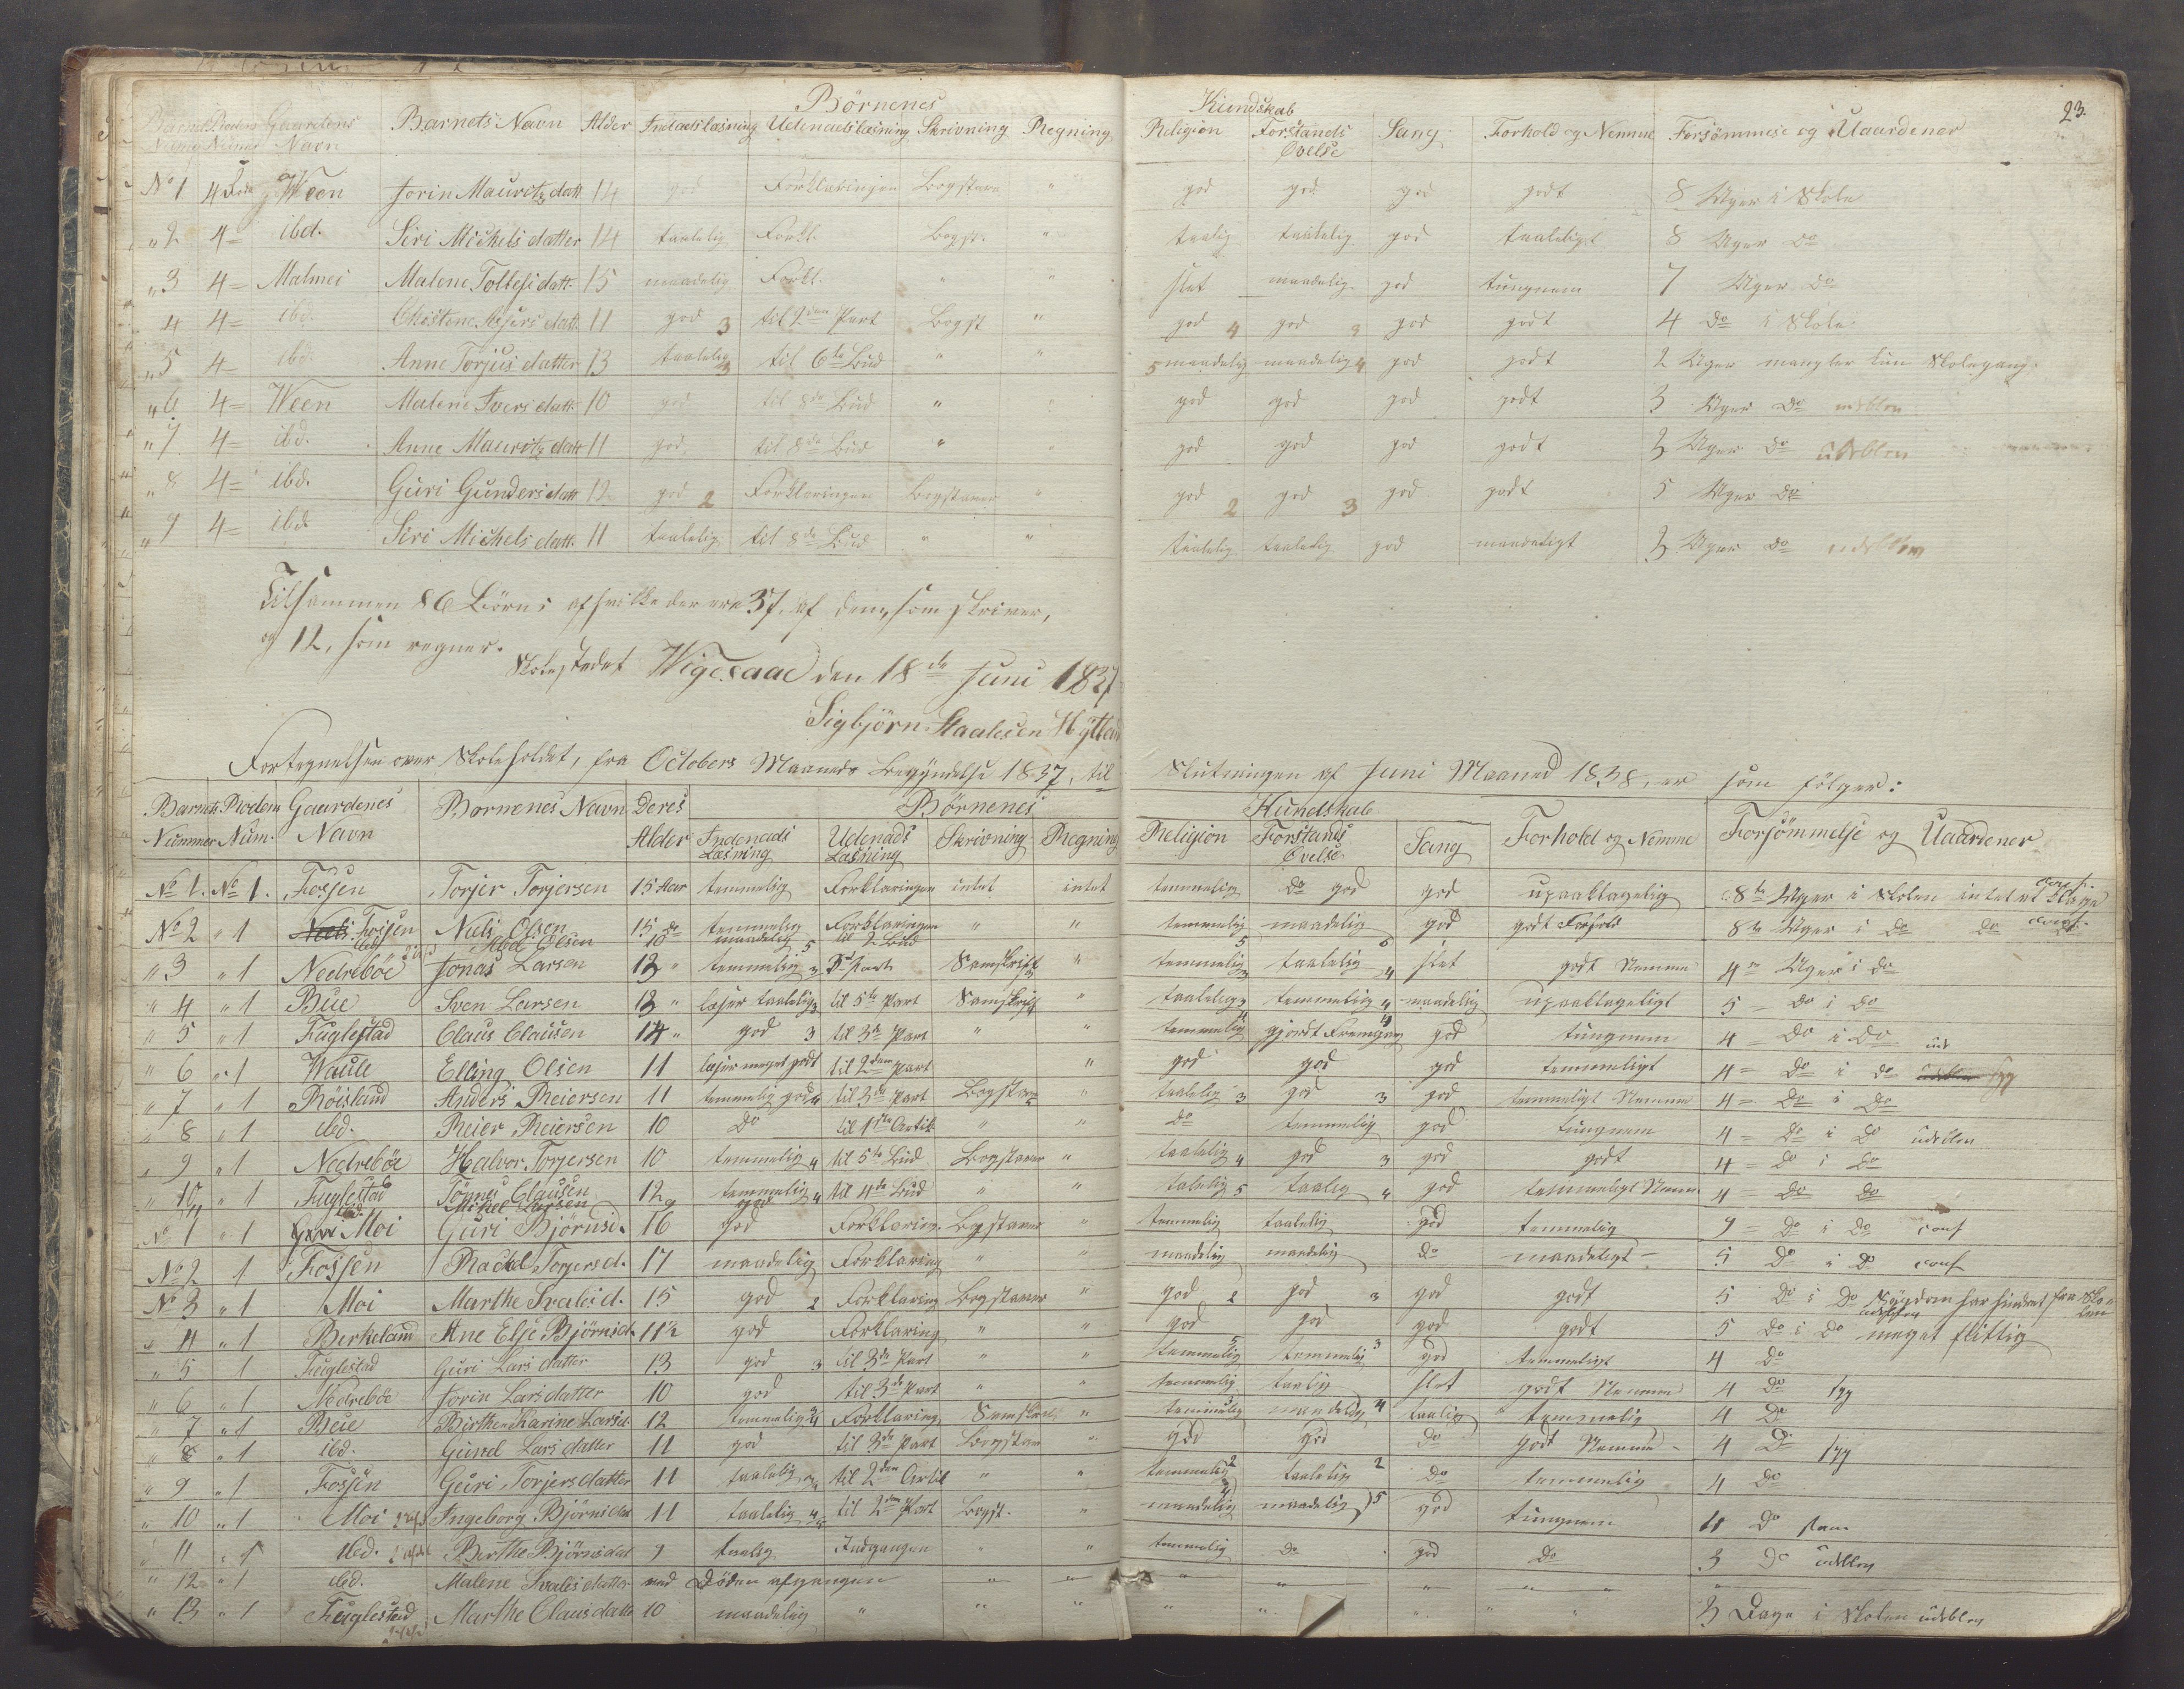 23.
Börnenes Kundskab
Barnets Nummer Rodens Numer Gaardens Navn Barnets Navn Alder Indenadslæsning Udenadslæsning Skrivning Regning Religion Forstands Øvelse Sang Forhold og Nemme Forsömmelse og Uaardener
No 1 4 Ween Jorin Mauritz datt 14 god Forklaringen Bogstaver " god god god godt 8 Uger i Skole
" 2 4 = ibd. Siri Michels datter 14 taalelig Forkl. Bogst. " taalig taalelig god taaleligt 8 Uger Do
" 3 4 = Malmei Malene Tollefs datt. 15 maadelig Forkl. " " slet maadelig god tungnem 7 Uger Do
4 4 = ibd. datt. 11 god 3 til 2den Part Bogst " god 4 god god godt 4 Do i Skole
" 5 4 = ibd. Anne Torjus datter 13 taalelig 3 til 6te Bud " " 5 maadelig maadelig 4 god godt 2 Uger mangler kun Skolegang.
" 6 4 = Ween Malene Ivers datt. 10 god til 8de Bud " " god god god godt 3 Uger Do udebleven
" 7 4 = ibd. Anne Mauritz datt 11 god til 8de Bud " " god god god godt 3 Uger Do udebleven
" 8 4 = ibd. Guri Gunders datt 12 god 2 Forklaringen Bogstaver " god 2 god 3 god godt 5 Uger Do
" 9 4 = ibd Siri Michels datt. 11 taalelig til 8de Bud " " taalelig taalelig god maadeligt 3 Uger Do udebleven
Tilsammen 86 Börn; af hvilke der ere 37, af dem, som skriver,
og 12, som regner.
Skolestedet Wigesaae den 18de Juni 1837
Sigbjörn Staalesen Hÿtland
Fortegnelsen over Skoleholdet, fra Octobers Maaneds Begÿndelse 1837, til Slutningen af Juni Maaned 1838, er som fölger:
Börnenes Kundskab
Barnets Nummer Rodens Num. Gaardenes Navn Bornenes Navn Deres Alder Indenads Læsning Udenads Læsning Skrivning Regning Religion Forstands Övelse Sang Forhold og Nemme Forsömmelse og Uaardener
No 1. No 1. Fossen Torjer Torjersen 15 Aar temmelig Forklaringen intet intet temmelig Do god god upaaklagelig 8te Uger i Skolen intet at klage conf.
No 2 " 1 Fossen Niels Olsen 15 Do temmelig Forklaringen " " temmelig maadelig god godt Forhold 8te Uger i Do Do conf.
ibd Abel Olsen 10 maadelig 5 til 2 Bud 5 6
" 3 " 1 Nedreböe Jonas Larsen 12 " temmelig 3 Part Samskrift " temmelig 3 taalelig 4 slet godt Nemme 4 = Uger i Do
" 4 " 1 Bue Sven Larsen 13 " læser taalelig 3 til 5te Part Samskrift " taalelig 3 temmelig 4 maadelig upaaklageligt 5 - Do i Do
" 5 " 1 Fuglestad Claus Clausen 14 " god 3 til 3de Part " " temmelig 4 gjordt Fremgang god tungnem 4 = Do i Do
" 6 " 1 Waule Elling Olsen 11 læser meget godt til 2den Part " god god god temmeligt 4 = Do i Do syg
" 7 " 1 Röisland Anders Reiersen 11 temmelig god 4 til 3de Part Bogstaver " taalelig 3 god 3 god temmeligt Nemme 4 = Do i Do
" 8 " 1 ibd. Reier Reiersen 10 Do til 1ste Artik " " Do temmelig god tungnem 4 = Do i Do udeblev
" 9 " 1 Nedreböe Halvor Torjersen 10 temmelig 4 til 5te Bud Bogstaver " taalelig 4 god 3 god godt 4 = Do i Do
" 10 " 1 Fuglestad Tönnes Clausen 12 temmelig 4 til 4de Bud " " talelig 5 taalig 4 god temmeligt Nemme 4 = Do Do
11 ibd. Mikel Larsen 9 god
No 1 " 1 Moi Guri Björnsd. 16 god Forklaring Bogstaver " temmelig taalelig god temmelig 9 = Do i Do conf
No 2 1 Fossen Rachel Torjersd. 17 maadelig Forklaring " " maadelig maadelig Do maadeligt 5 Do i Do conf
No 3 " 1 Moi Marthe Svalesd. 15 god 2 Forklaring Bogstaver " god 2 god 3 god godt 5 Do i Do Sÿgdom har hindret fra Skolen
" 4 " 1 Berkeland Ane Else Björnsd. 11½ god Forklaring " " god god god godt 5 Do i Do meget flittig
" 5 1 Fuglestad Guri Lars datter 13 god 3 til 3de Part " " temmelig 5 temmelig 3 god temmeligt 4 Do
" 6 " 1 Nedreböe Jorin Larsdatter 10 god til 3de Part " " temmelig taalig slet godt Nemme 4 Do syg
" 7 " 1 Bue Birthe Karine Larsd. 12 temmelig 4 Forklaring Samskrift " temmelig maadelig 4 taalig temmelig 4 Do
" 8 " 1 ibd. Gunild Lars datter 11 god til 3de Part Bogstaver " god god Do godt Nemme 4 Do syg
" 9 " 1 Fossen Guri Torjersdatter 11 taalelig til 2den Artik " " temmelig 2 taalelig 2 Do temmelig 4 Do
" 10 " 1 Moi Ingeborg Björnsdat 11 taalelig til 2den Part Bogst. " maadelig maadelig 5 god tungnem 4 Do
" 11 " 1 ibd. Berthe Björnsdat 9 taalig Indgangen " " temmelig Do god Do 3 Do udeblev
" 12 " 1 ibd. Malene Svalesdatter ved Döden afgangen " " " " " " " "
" 13 " 1 Fuglestad Marthe Clausdatt 10 maadelig " " " " " " " " 3 Dage i Skolen udeblev